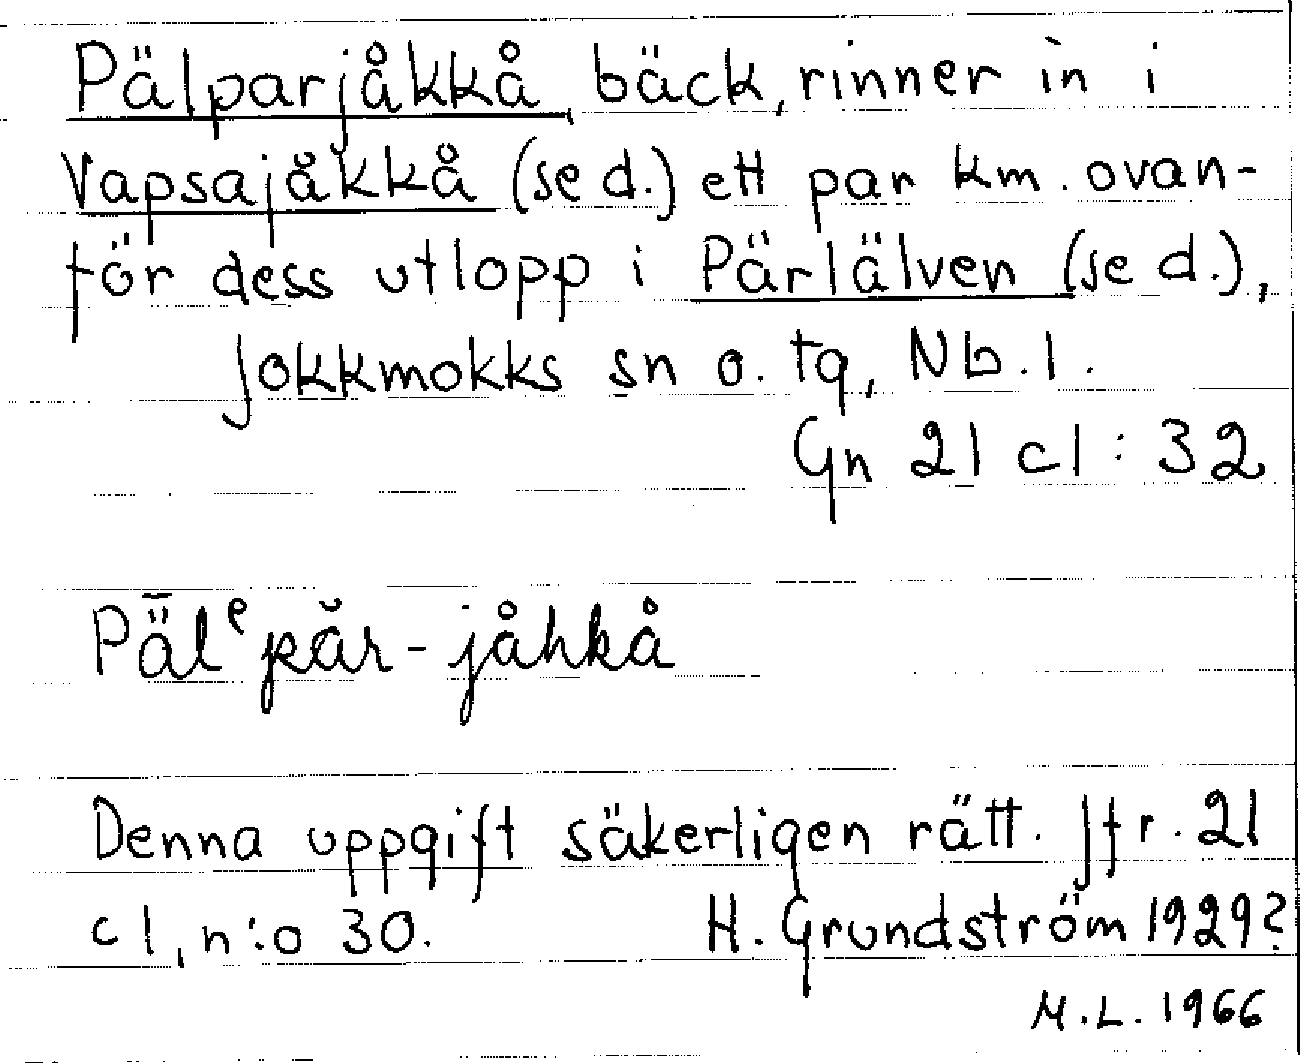 Pälparjåkkå, bäck, rinner ìn i
Vapsajåkkå (se d.) ett par km. ovan-
för dess utlopp i Pärlälven (se d.),
Jokkmokks sn o. tg, Nb. l.
Gn 21 c1 : 32
Pǟlᵉpăr-jåhkå
Denna uppgift säkerligen rätt. Jfr. 21
c 1, n:o 30. H. Grundström 1929?
M.L. 1966